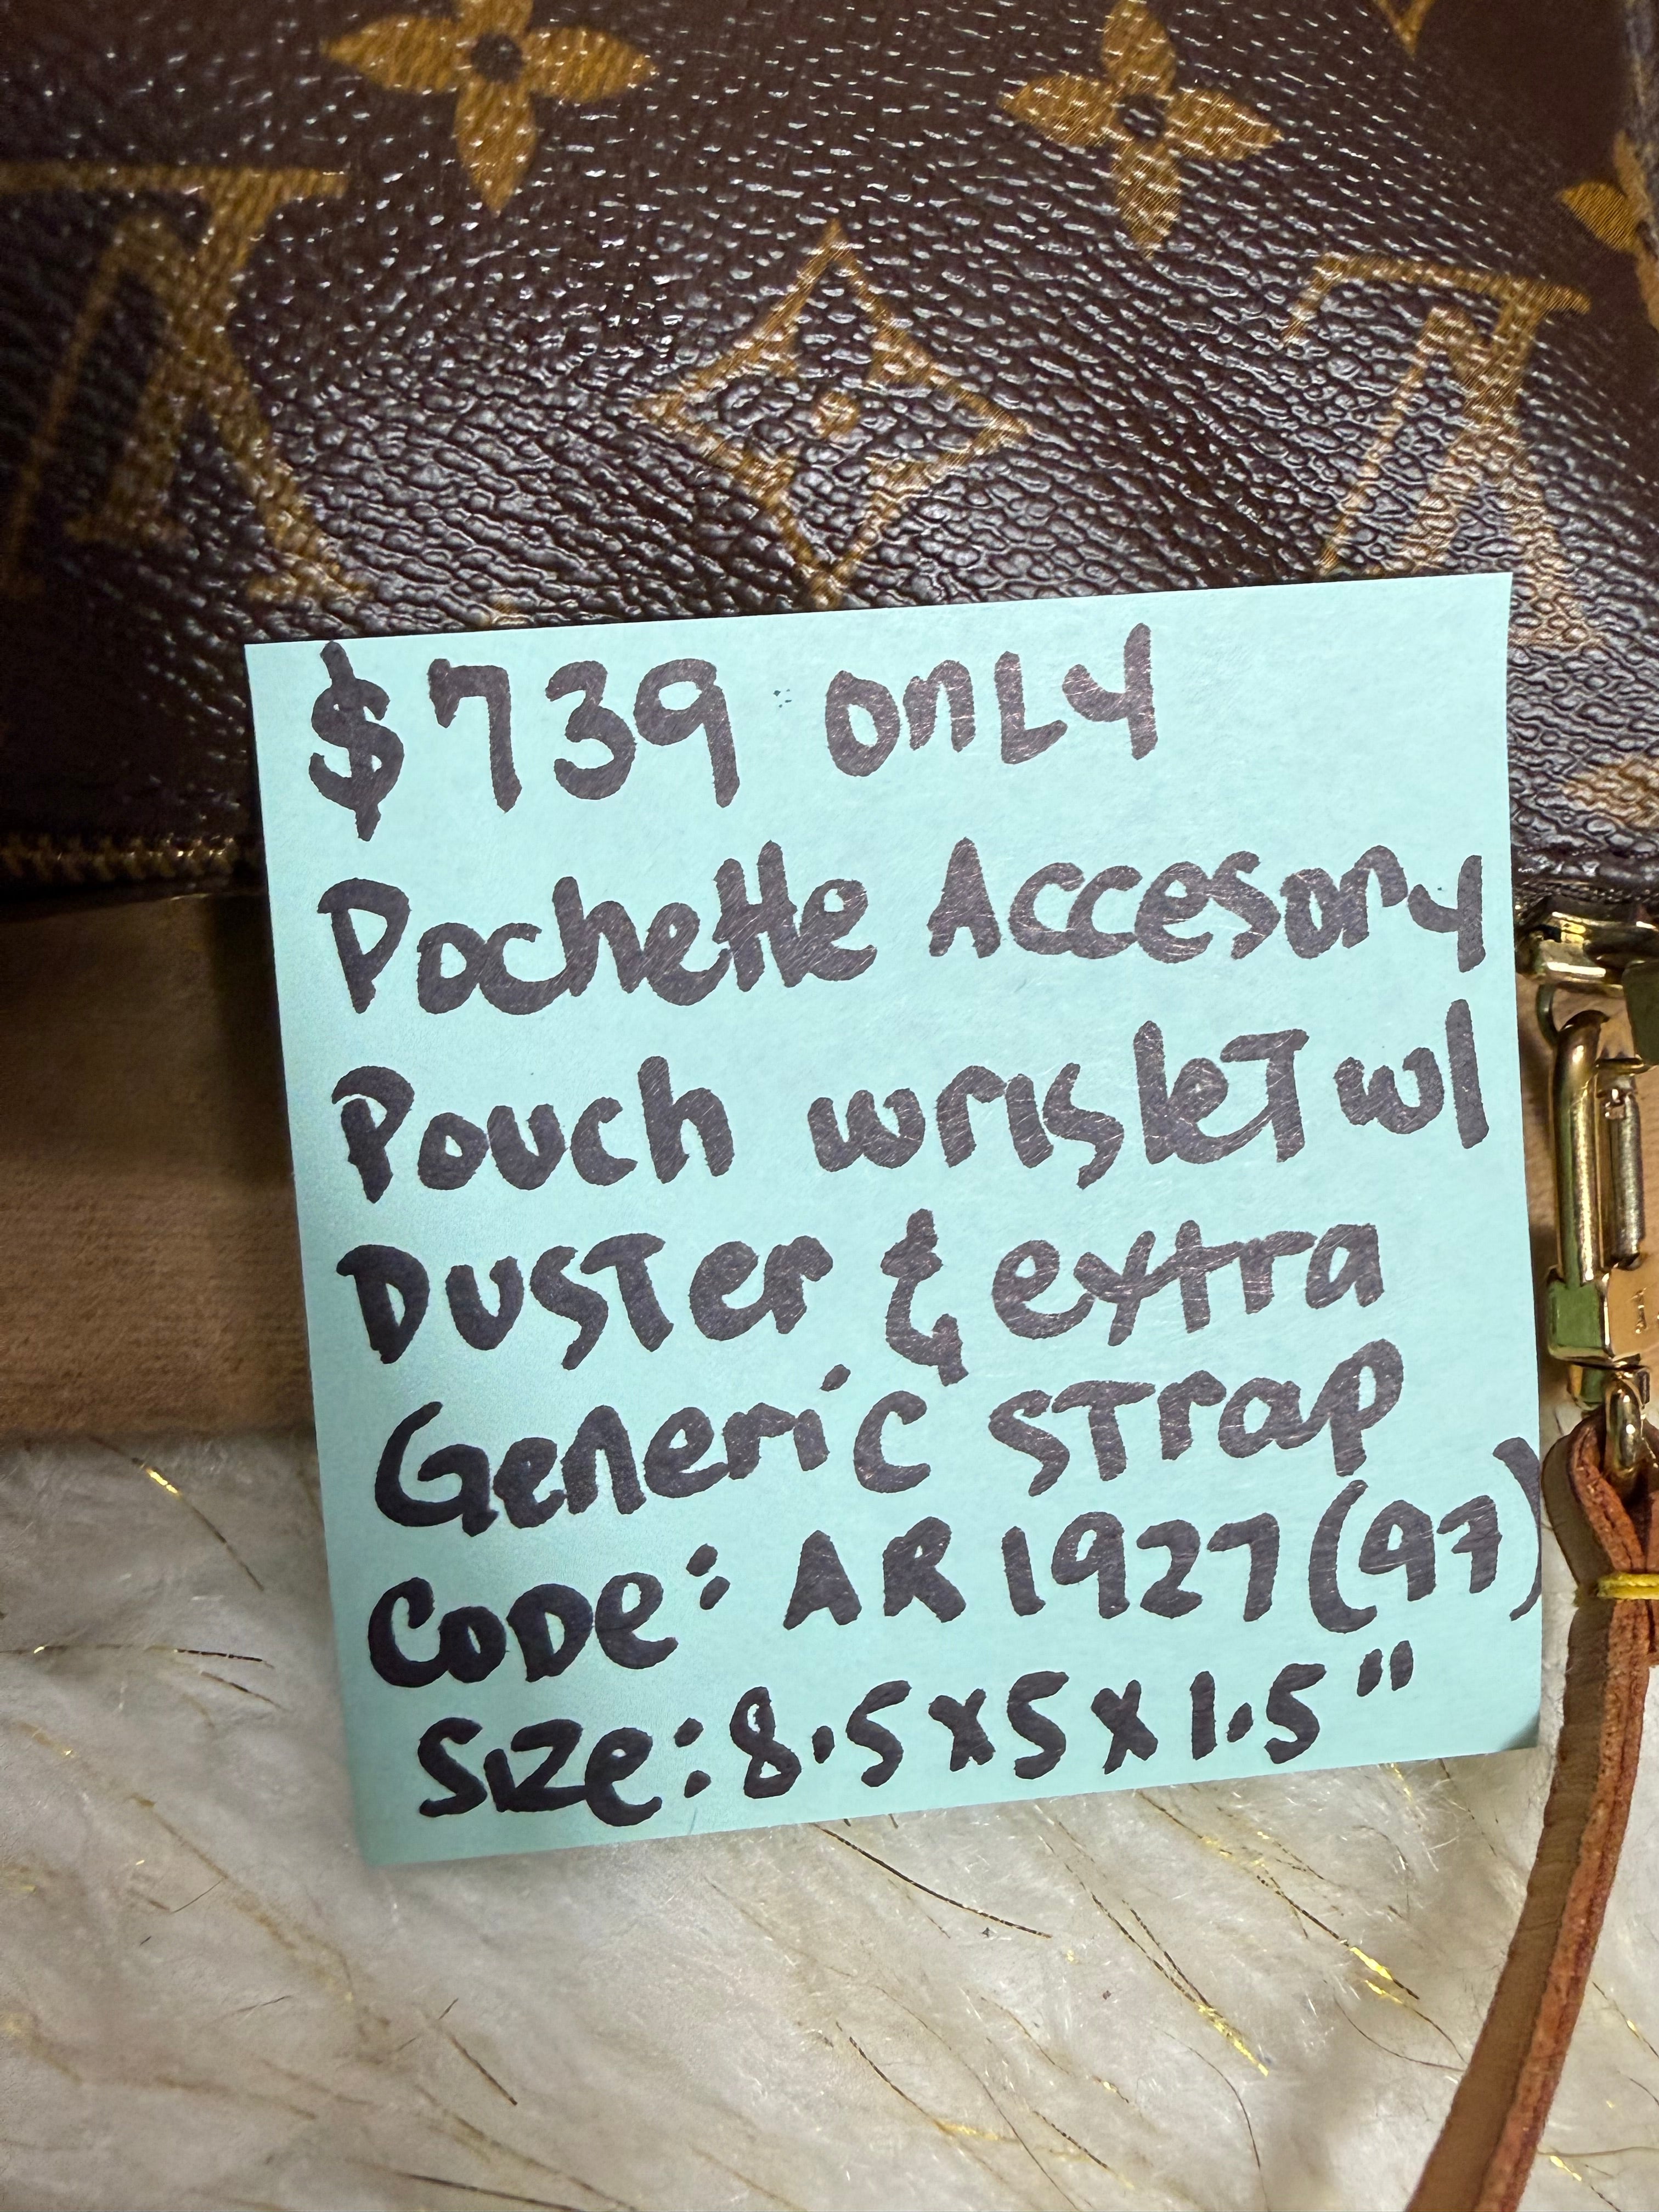 $739 only
Pochette Accesory
Pouch wrisleT w/
DusTer & extra
Generic sTrap
Code: AR1927(97)
Size: 8.5x5x1.5"